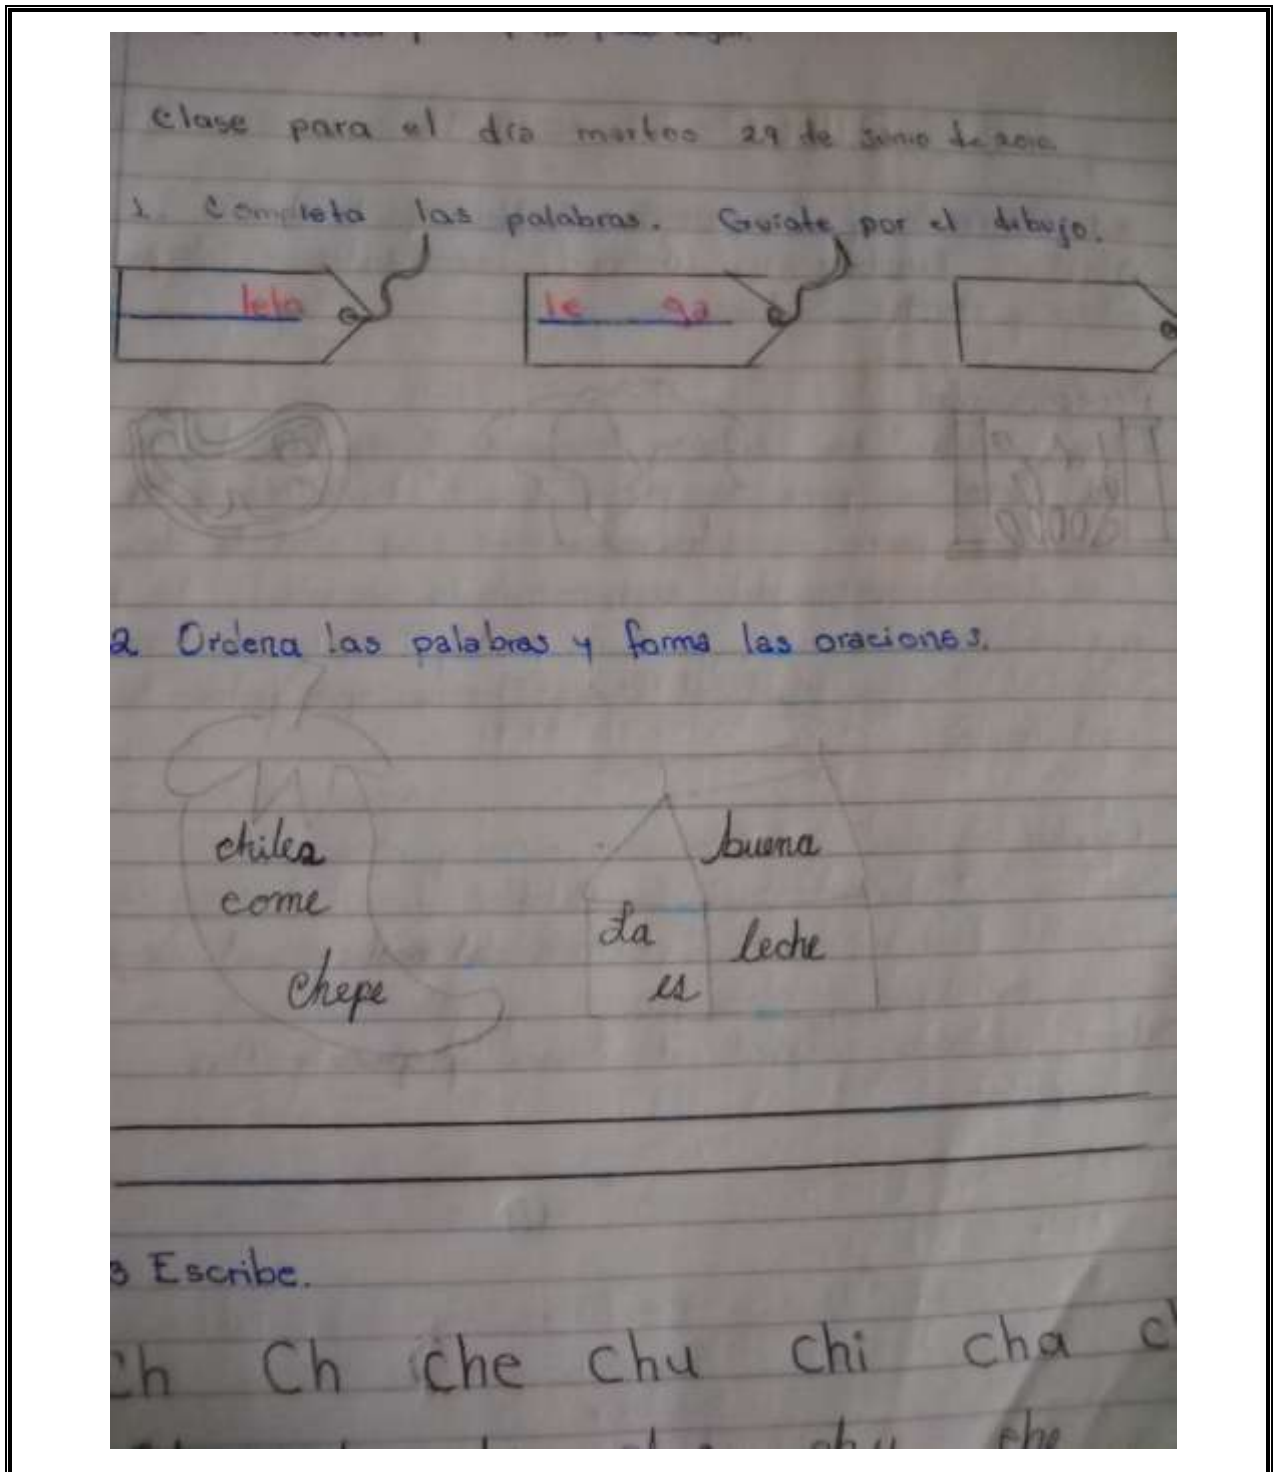 Clase para el día martes 29 de Junio de
1. Completa las palabras. Guiate por el dibujo.
leta le ga
2 Ordena las palabras y forma las oraciones.
chiles
come
Chepe
buena
La leche
es
3 Escribe.
Ch Ch che chu chi cha
chu che